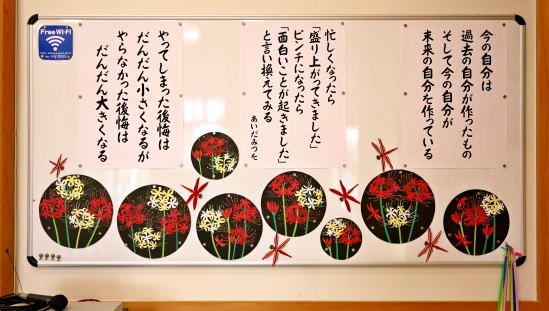 今の自分は
過去の自分が作ったもの
そして今の自分が
未来の自分を作っている
忙しくなったら
「盛り上がってきました」
ピンチになったら
「面白いことが起きました」
と言い換えてみる
あいだみつを
やってしまった後悔は
だんだん小さくなるが
やらなかった後悔は
だんだん大きくなる
Free Wi-Fi